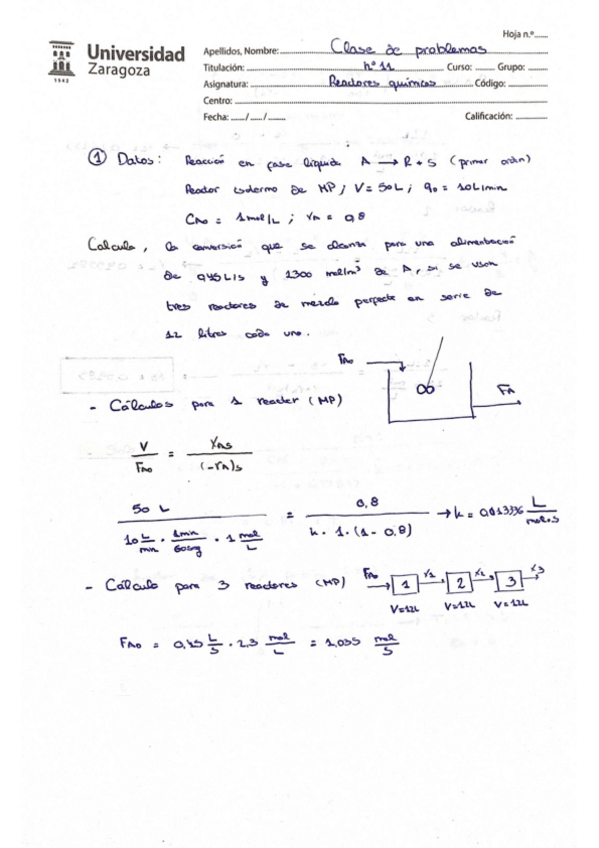 Hoja n.º
Universidad
Zaragoza
1542
Apellidos, Nombre: Clase de problemas
Titulación: nº 11 Curso: Grupo:
Asignatura: Reactores químicos Código:
Centro:
Fecha: / / Calificación:
① Datos: Reacción en fase líquida A → R + S (primer orden)
Reactor isotermo de MP; V = 50L; q₀ = 10L/min
CA0 = 1mol/L; XA = 0,8
Calcula, la conversión que se alcanza para una alimentación
de 0,45 L/s y 2300 mol/m³ de A, si se usan
tres reactores de mezcla perfecta en serie de
12 litros cada uno.
FA0
FA
- Cálculos para 1 reactor (MP)
V / FA0 = XAS / (-rA)s
50 L / (10 L/min · 1min/60seg · 1 mol/L) = 0,8 / (k · 1 · (1 - 0,8)) → k = 0,01336 L/mol·s
- Cálculo para 3 reactores (MP) FA0 → 1 X1 → 2 X2 → 3 X3 →
V=12L V=12L V=12L
FA0 = 0,45 L/s · 2,3 mol/L = 1,035 mol/s